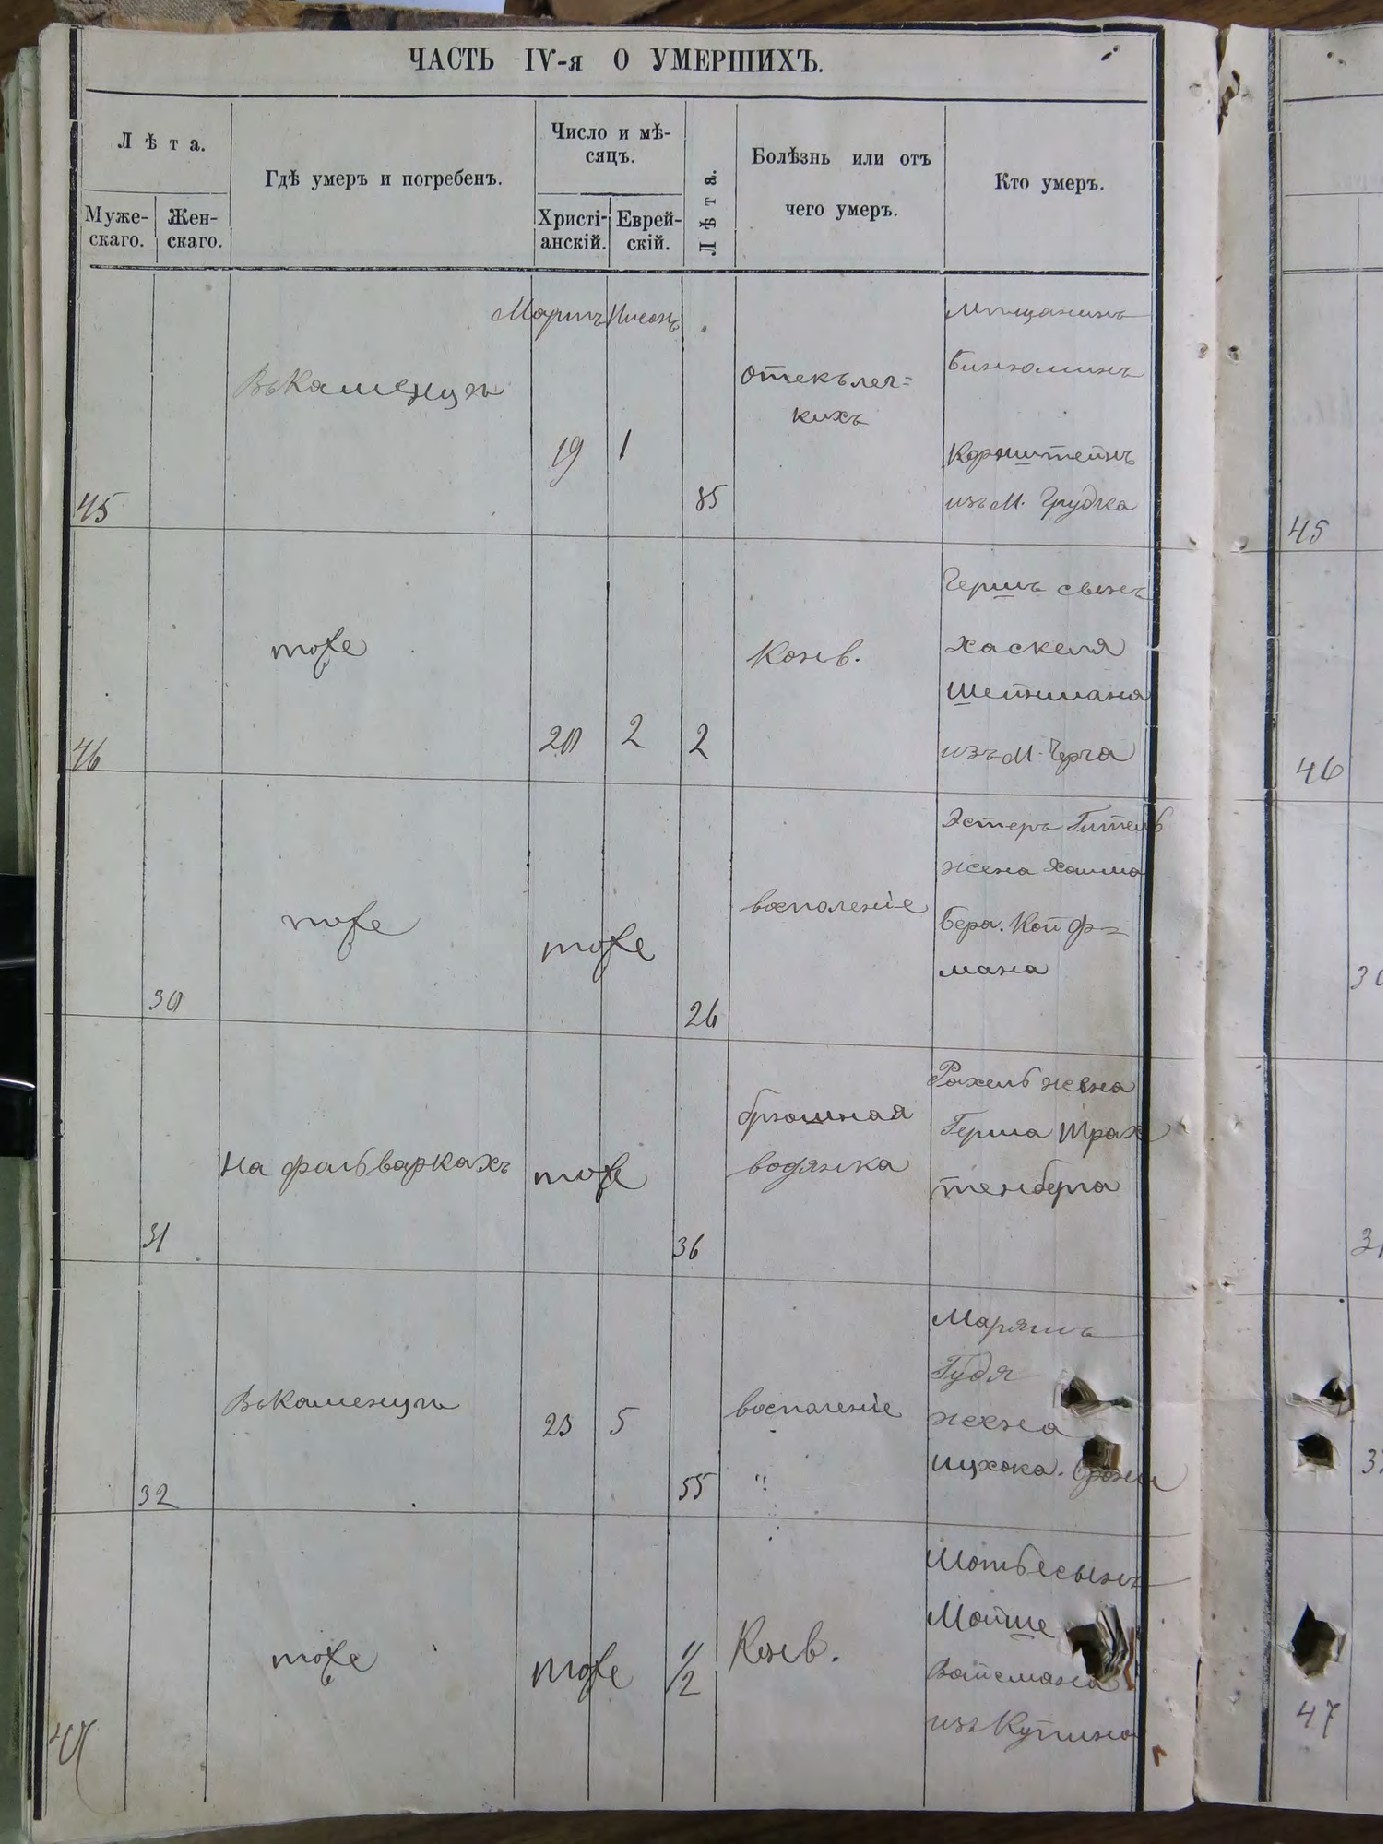 ЧАСТЬ IV-я О УМЕРШИХЪ.
Лѣта.
Муже-
скаго.
Жен-
скаго.
Гдѣ умеръ и погребенъ.
Число и мѣ-
сяцъ.
Христі-
анскій.
Еврей-
скій.
Лѣта.
Болѣзнь или отъ
чего умеръ.
Кто умеръ.
Мартъ
Нисонъ
45
Въ Каменцѣ
19
1
85
отекъ лег=
кихъ
мѣщанинъ
Биньоминъ
Корнштейнъ
изъ М. Грудка
45
46
тоже
20
2
2
Конв.
Гершъ сынъ
Хаскеля
Шейнмана
изъ М.
46
30
тоже
тоже
26
воспаленіе
Эстеръ Гитель
жена Хаима
Бера. Койф=
мана
31
на фальваркахъ
тоже
36
брюшная
водянка
Рахель жена
Герша Трах
тенберга
32
Въ Каменцѣ
23
5
55
воспаленіе
Марямъ
Гудя
жена
47
тоже
тоже
1/2
Конв.
сынъ
Мойше
Вайсмана
изъ Купина
47